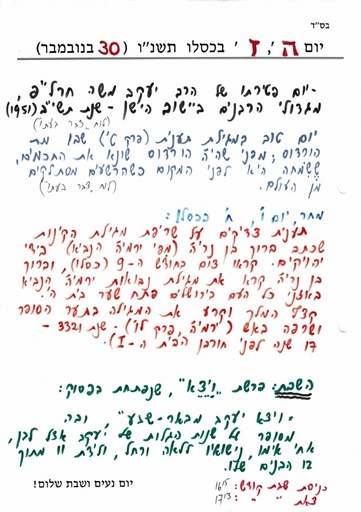 בס"ד
יום ה', ז' בכסלו תשנ"ו (30 בנובמבר)
-יום פטירתו של הרב יעקב משה חרל"פ,
מגדולי הרבנים ביישוב הישן - שנת תשי"ב (1951)
(לוח דבר בעתו)
יום טוב במגילת תענית (פרק ט') שבו מת
הורדוס; מפני שהיה הורדוס שונא את החכמים,
ששמחה היא לפני המקום כשהרשעים מסתלקים
מן העולם. (לוח דבר בעתו)
מחר, יום ו', ח' בכסלו:
תענית צדיקים על שריפת מגילת הקינות
שכתב ברוך בן נריה (מפי ירמיה הנביא) בידי
יהויקים. קראו צום בחודש ה-9 (כסלו), וברוך
בן נריה קרא את מגילת נבואות ירמיה הנביא
באזני כל העם בירושלים פתח שער בית ה'.
קצף המלך וקרע את המגילה בתער הסופר
ושרפה באש (ירמיה, פרק לו) - שנת 3322 -
17 שנה לפני חורבן הבית ה-I).
השבת: פרשת "ויצא", שנפתחת בפסוק:
"ויצא יעקב מבאר-שבע", ובה
מסופר על שנות הגלות של יעקב אצל לבן,
אחי אימו, נישואיו ללאה ורחל, ולידת 11 מתוך
12 הבנים שלו.
יום נעים ושבת שלום!
כניסת שבת קודש:
צאת